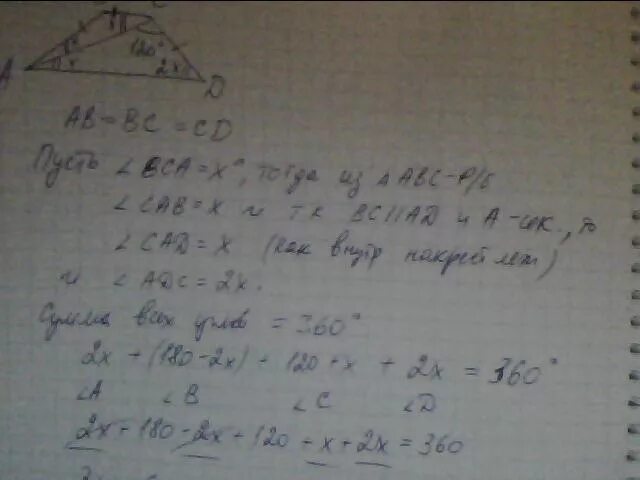 C
A
D
120°
2x
x
x
AB = BC = CD
Пусть ∠BCA = x°, тогда из △ABC – р/б
∠CAB = x и т.к BC || AD и A - сек., то
∠CAD = x (как внутр накрест леж)
и ∠ADC = 2x.
Сумма всех углов = 360°
2x + (180 - 2x) + 120 + x + 2x = 360°
∠A ∠B ∠C ∠D
2x + 180 - 2x + 120 + x + 2x = 360